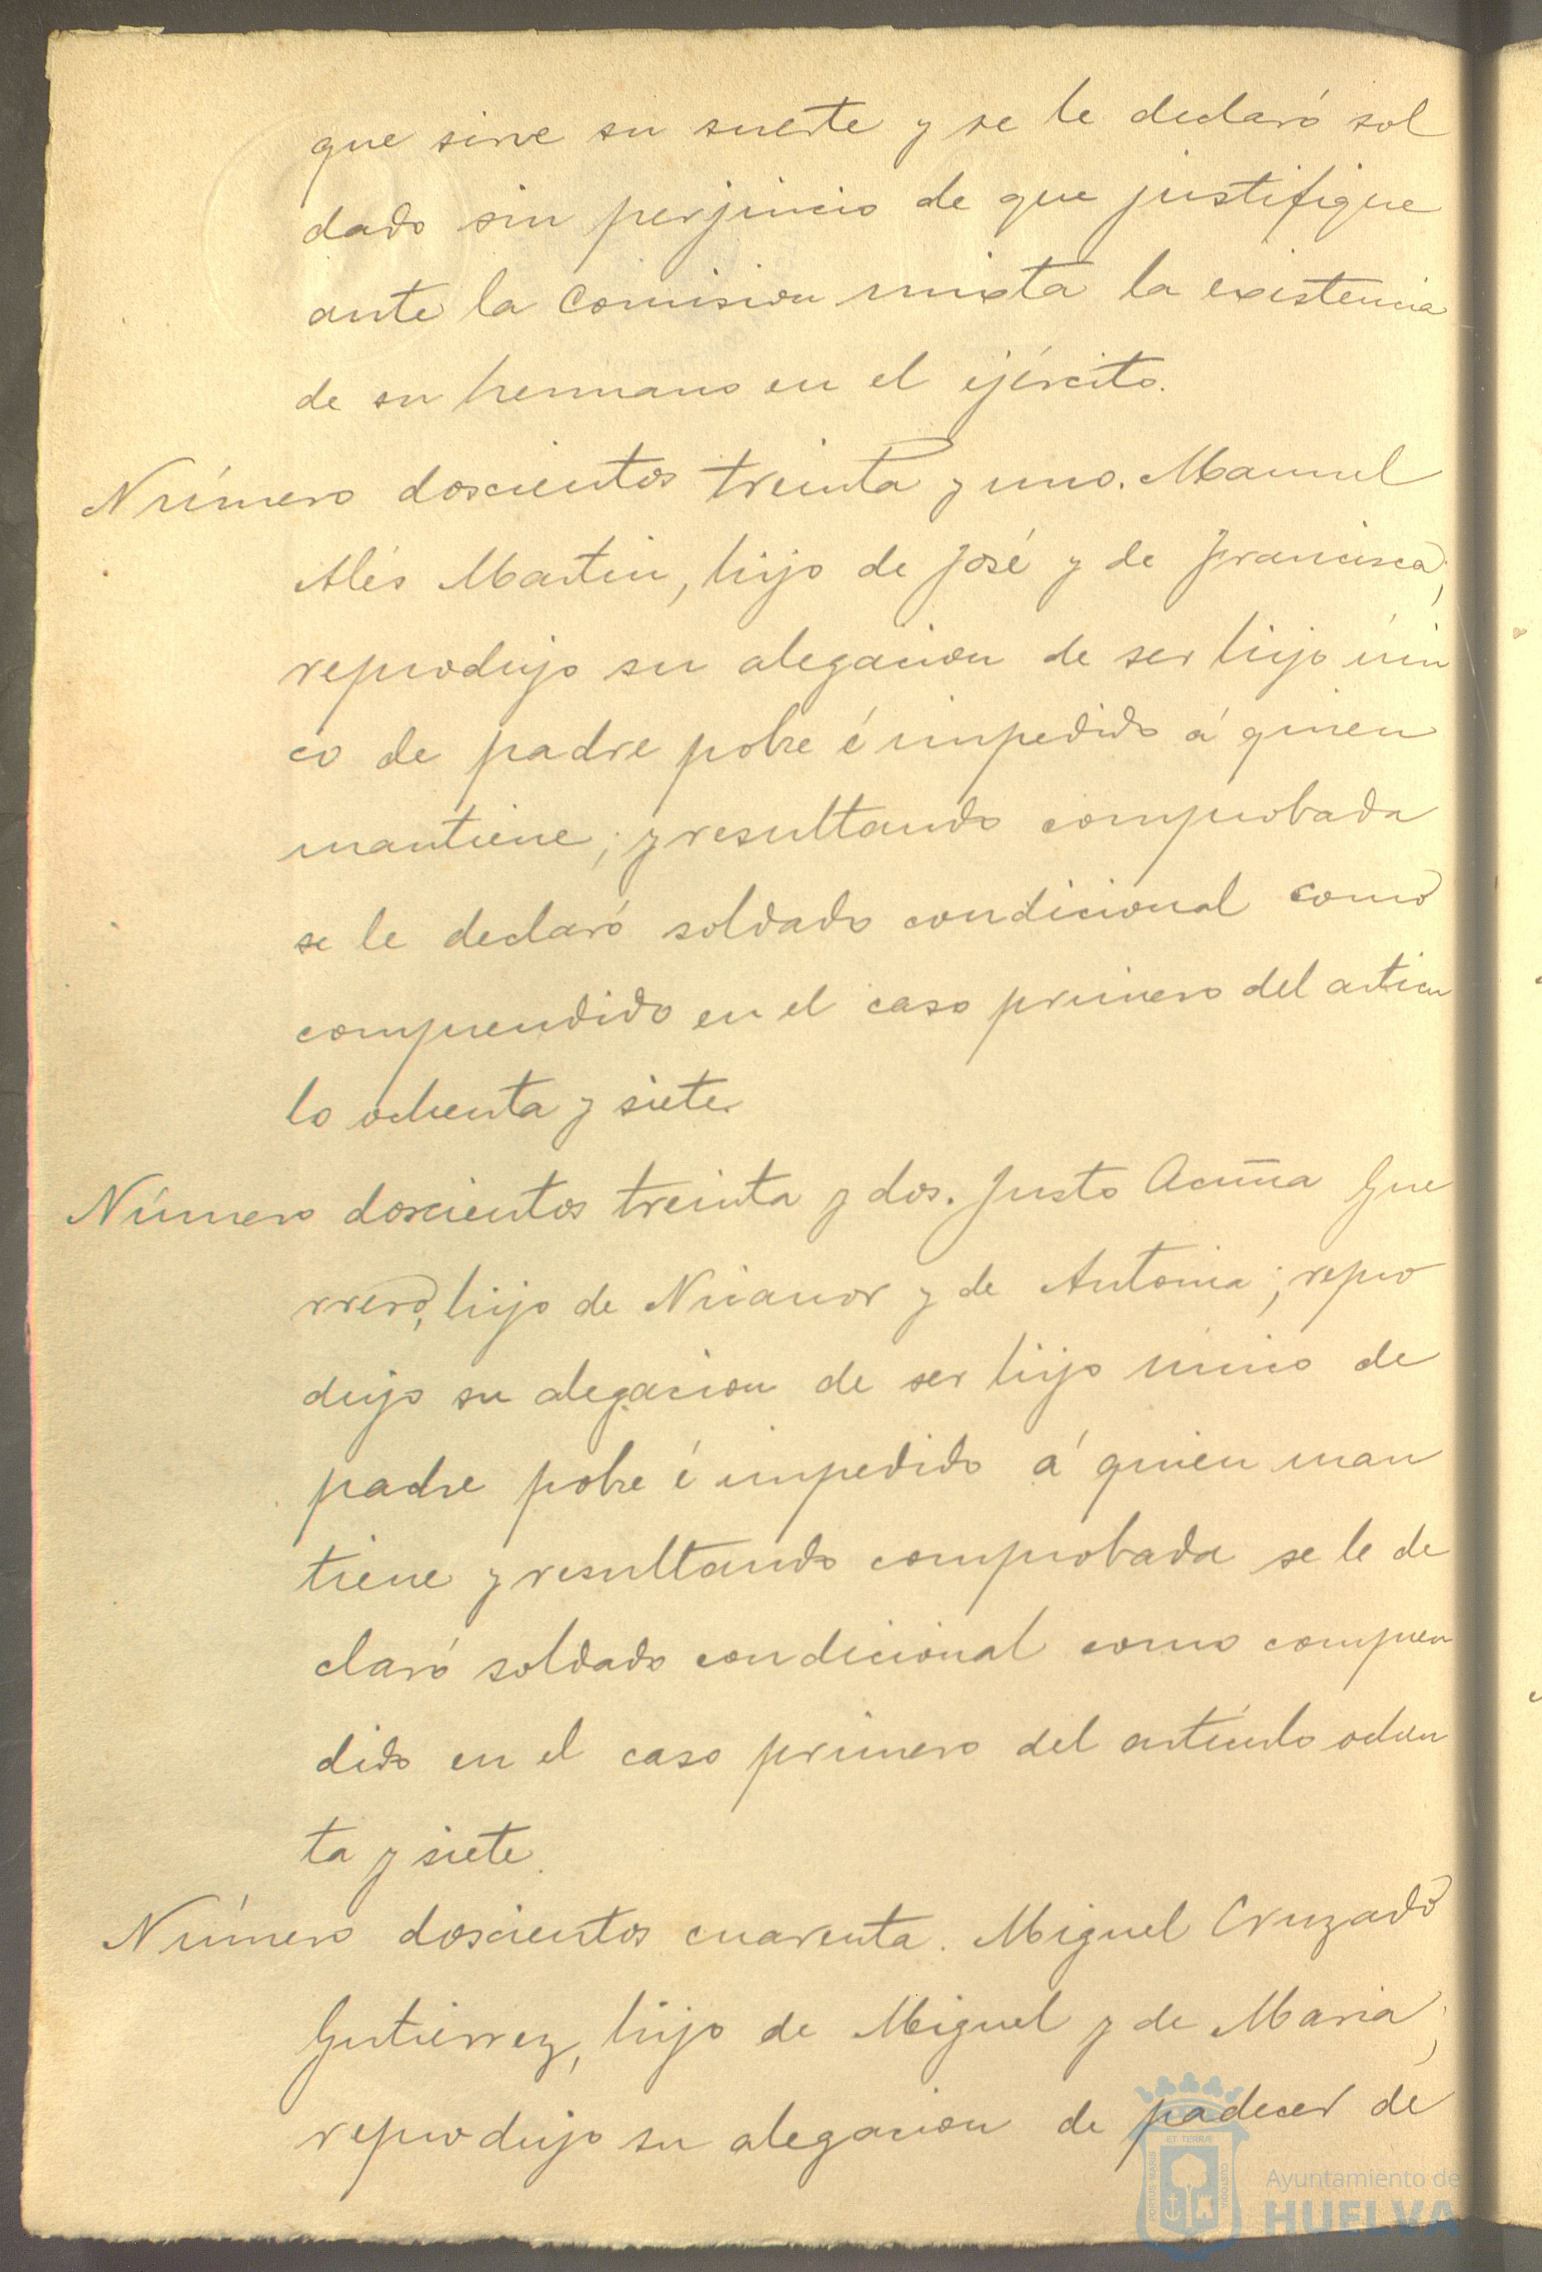 que sirve su suerte y se le declaró sol
dado sin perjuicio de que justifique
ante la Comision mixta la existencia
de su hermano en el ejército.
Número doscientos treinta y uno. Manuel
Alés Martin, hijo de José y de Francisca;
reprodujo su alegacion de ser hijo úni
co de padre pobre é impedido á quien
mantiene; y resultando comprobada
se le declaró soldado condicional como
comprendido en el caso primero del articu
lo ochenta y siete.
Número doscientos treinta y dos. Justo Acuña Gue
rrero, hijo de Nicanor y de Antonia; repro
dujo su alegacion de ser hijo único de
padre pobre é impedido á quien man
tiene y resultando comprobada se le de
claró soldado condicional como compren
dido en el caso primero del artículo ochen
ta y siete.
Número doscientos cuarenta. Miguel Cruzado
Gutierrez, hijo de Miguel y de Maria;
reprodujo su alegacion de padecer de
PORTUS MARIS ET TERRÆ CUSTODIA
Ayuntamiento de
HUELVA